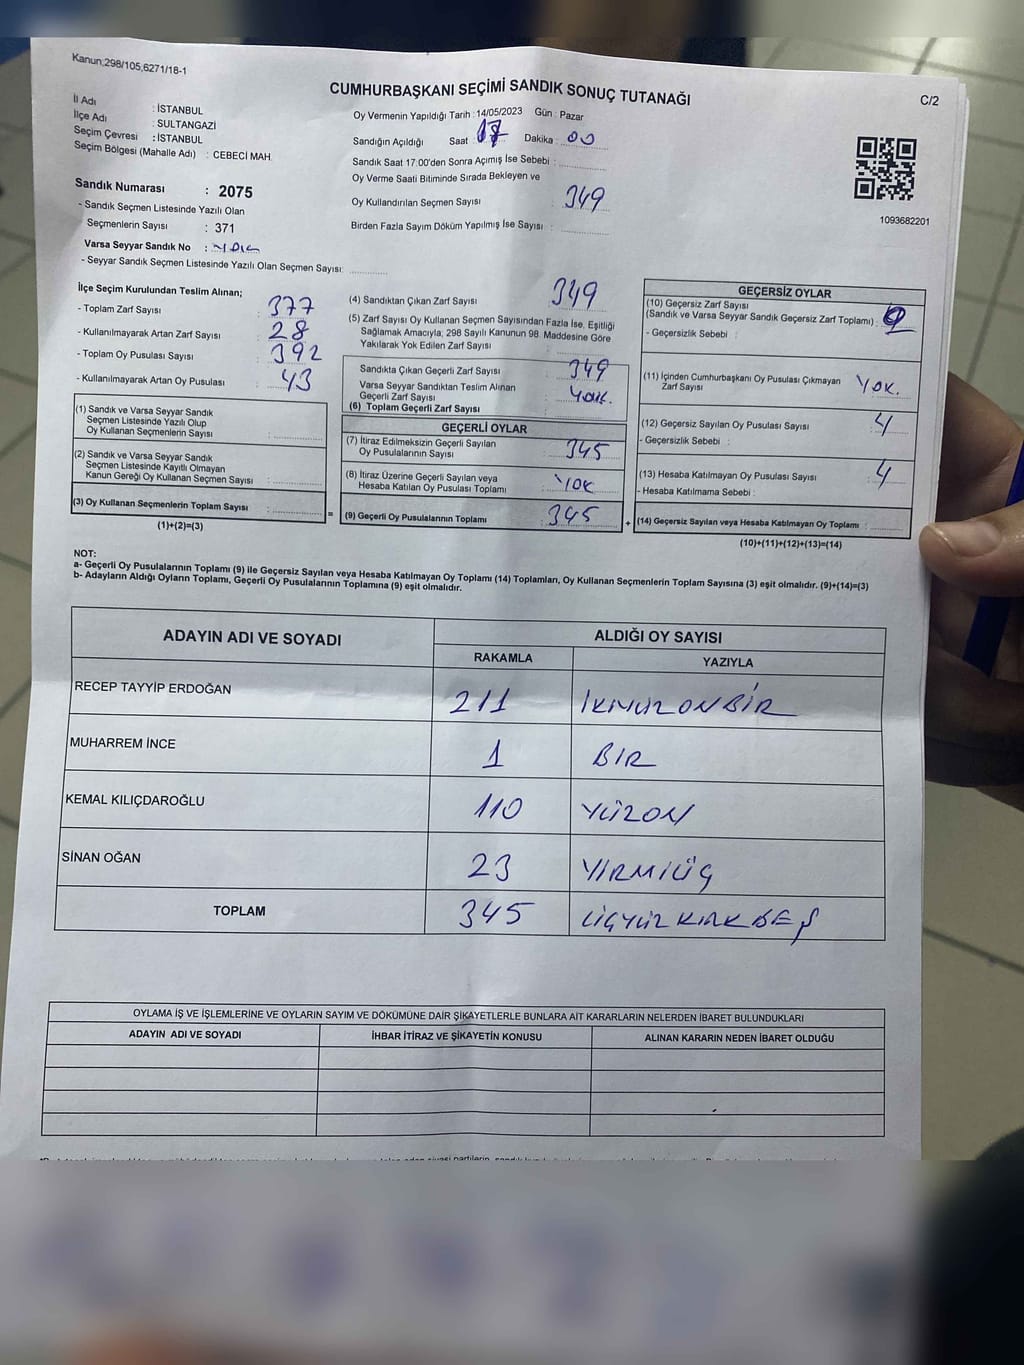 Kanun;298/105,6271/18-1
CUMHURBAŞKANI SEÇİMİ SANDIK SONUÇ TUTANAĞI
C/2
İl Adı : İSTANBUL
İlçe Adı : SULTANGAZİ
Seçim Çevresi : İSTANBUL
Seçim Bölgesi (Mahalle Adı) : CEBECİ MAH.
Sandık Numarası : 2075
- Sandık Seçmen Listesinde Yazılı Olan
Seçmenlerin Sayısı : 371
Varsa Seyyar Sandık No : YOK
- Seyyar Sandık Seçmen Listesinde Yazılı Olan Seçmen Sayısı:
Oy Vermenin Yapıldığı Tarih : 14/05/2023 Gün : Pazar
Sandığın Açıldığı Saat : 17 Dakika : 00
Sandık Saat 17:00'den Sonra Açımış İse Sebebi :
Oy Verme Saati Bitiminde Sırada Bekleyen ve
Oy Kullandırılan Seçmen Sayısı : 349
Birden Fazla Sayım Döküm Yapılmış İse Sayısı :
1093682201
İlçe Seçim Kurulundan Teslim Alınan;
- Toplam Zarf Sayısı : 377
- Kullanılmayarak Artan Zarf Sayısı : 28
- Toplam Oy Pusulası Sayısı : 392
- Kullanılmayarak Artan Oy Pusulası : 43
(1) Sandık ve Varsa Seyyar Sandık
Seçmen Listesinde Yazılı Olup
Oy Kullanan Seçmenlerin Sayısı :
(2) Sandık ve Varsa Seyyar Sandık
Seçmen Listesinde Kayıtlı Olmayan
Kanun Gereği Oy Kullanan Seçmen Sayısı :
(3) Oy Kullanan Seçmenlerin Toplam Sayısı :
(1)+(2)=(3)
(4) Sandıktan Çıkan Zarf Sayısı : 349
(5) Zarf Sayısı Oy Kullanan Seçmen Sayısından Fazla İse, Eşitliği
Sağlamak Amacıyla; 298 Sayılı Kanunun 98. Maddesine Göre
Yakılarak Yok Edilen Zarf Sayısı
Sandıkta Çıkan Geçerli Zarf Sayısı : 349
Varsa Seyyar Sandıktan Teslim Alınan
Geçerli Zarf Sayısı : YOK.
(6) Toplam Geçerli Zarf Sayısı
GEÇERLİ OYLAR
(7) İtiraz Edilmeksizin Geçerli Sayılan
Oy Pusulalarının Sayısı : 345
(8) İtiraz Üzerine Geçerli Sayılan veya
Hesaba Katılan Oy Pusulası Toplamı : YOK
= (9) Geçerli Oy Pusulalarının Toplamı : 345
GEÇERSİZ OYLAR
(10) Geçersiz Zarf Sayısı
(Sandık ve Varsa Seyyar Sandık Geçersiz Zarf Toplamı) :
- Geçersizlik Sebebi :
(11) İçinden Cumhurbaşkanı Oy Pusulası Çıkmayan
Zarf Sayısı : YOK.
(12) Geçersiz Sayılan Oy Pusulası Sayısı : 4
- Geçersizlik Sebebi :
(13) Hesaba Katılmayan Oy Pusulası Sayısı : 4
- Hesaba Katılmama Sebebi :
+ (14) Geçersiz Sayılan veya Hesaba Katılmayan Oy Toplamı :
(10)+(11)+(12)+(13)=(14)
NOT:
a- Geçerli Oy Pusulalarının Toplamı (9) ile Geçersiz Sayılan veya Hesaba Katılmayan Oy Toplamı (14) Toplamları, Oy Kullanan Seçmenlerin Toplam Sayısına (3) eşit olmalıdır. (9)+(14)=(3)
b- Adayların Aldığı Oyların Toplamı, Geçerli Oy Pusulalarının Toplamına (9) eşit olmalıdır.
ADAYIN ADI VE SOYADI
ALDIĞI OY SAYISI
RAKAMLA YAZIYLA
RECEP TAYYİP ERDOĞAN 211 İKİYÜZONBİR
MUHARREM İNCE 1 BİR
KEMAL KILIÇDAROĞLU 110 YÜZON
SİNAN OĞAN 23 YİRMİÜÇ
TOPLAM 345 ÜÇYÜZKIRKBEŞ
OYLAMA İŞ VE İŞLEMLERİNE VE OYLARIN SAYIM VE DÖKÜMÜNE DAİR ŞİKAYETLERLE BUNLARA AİT KARARLARIN NELERDEN İBARET BULUNDUKLARI
ADAYIN ADI VE SOYADI İHBAR İTİRAZ VE ŞİKAYETİN KONUSU ALINAN KARARIN NEDEN İBARET OLDUĞU